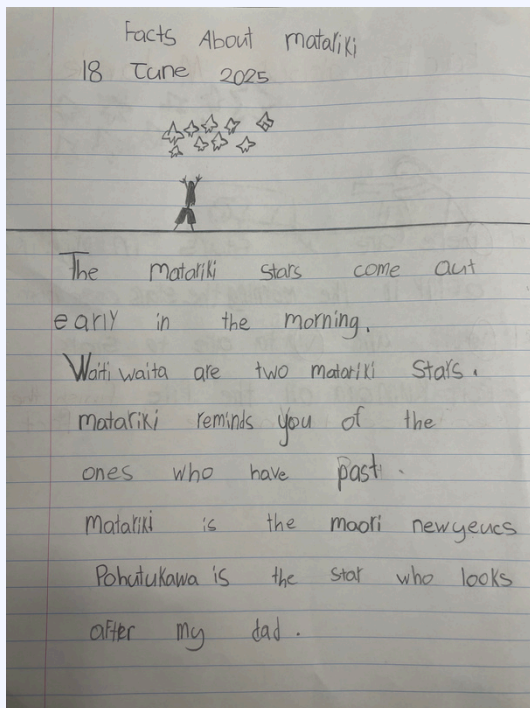 Facts About mataliki
18 June 2025
The matariki stars come out
early in the morning.
Waiti waita are two matariki stars.
matariki reminds you of the
ones who have past.
Matariki is the maori newyeucs
Pohutukawa is the star who looks
after my dad.